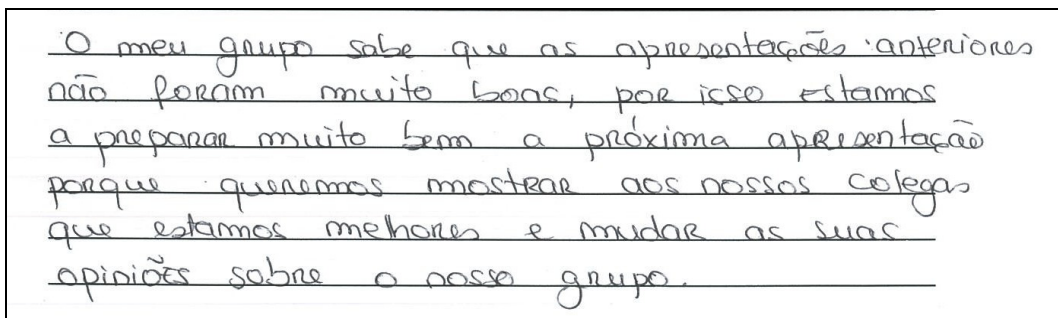 O meu grupo sabe que as apresentações anteriores
não foram muito boas, por isso estamos
a preparar muito bem a próxima apresentação
porque queremos mostrar aos nossos colegas
que estamos melhores e mudar as suas
opiniões sobre o nosso grupo.